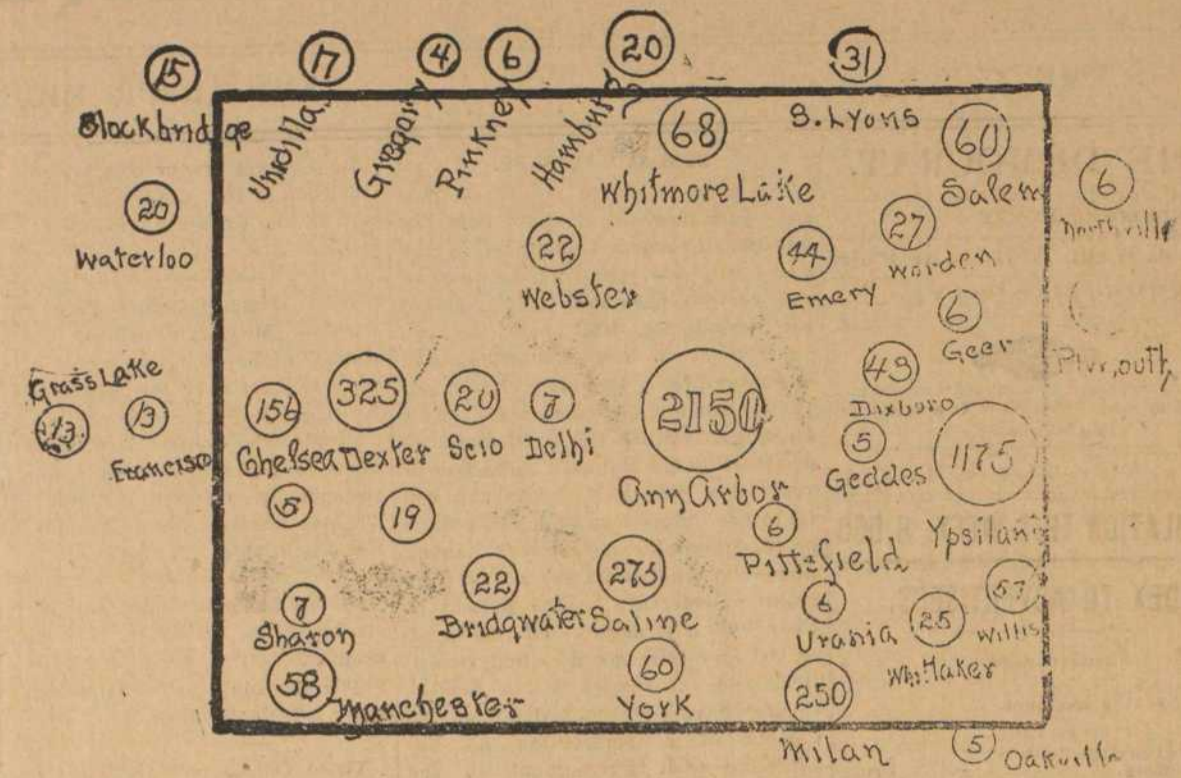 15
17
4
6
20
31
Stockbridge
Unadilla
Gregory
Pinkney
Hamburg
68
Whitmore Lake
S. Lyons
60
Salem
6
Northville
20
Waterloo
22
Webster
44
Emery
27
Worden
6
Geer
Grass Lake
13
13
Francisco
156
Chelsea
325
Dexter
20
Scio
7
Delhi
2150
Ann Arbor
43
Dixboro
5
Geddes
1175
Ypsilanti
5
19
6
Pittsfield
7
Sharon
22
Bridgwater
275
Saline
6
Urania
25
Whittaker
57
Willis
58
Manchester
60
York
250
Milan
5
Oakville